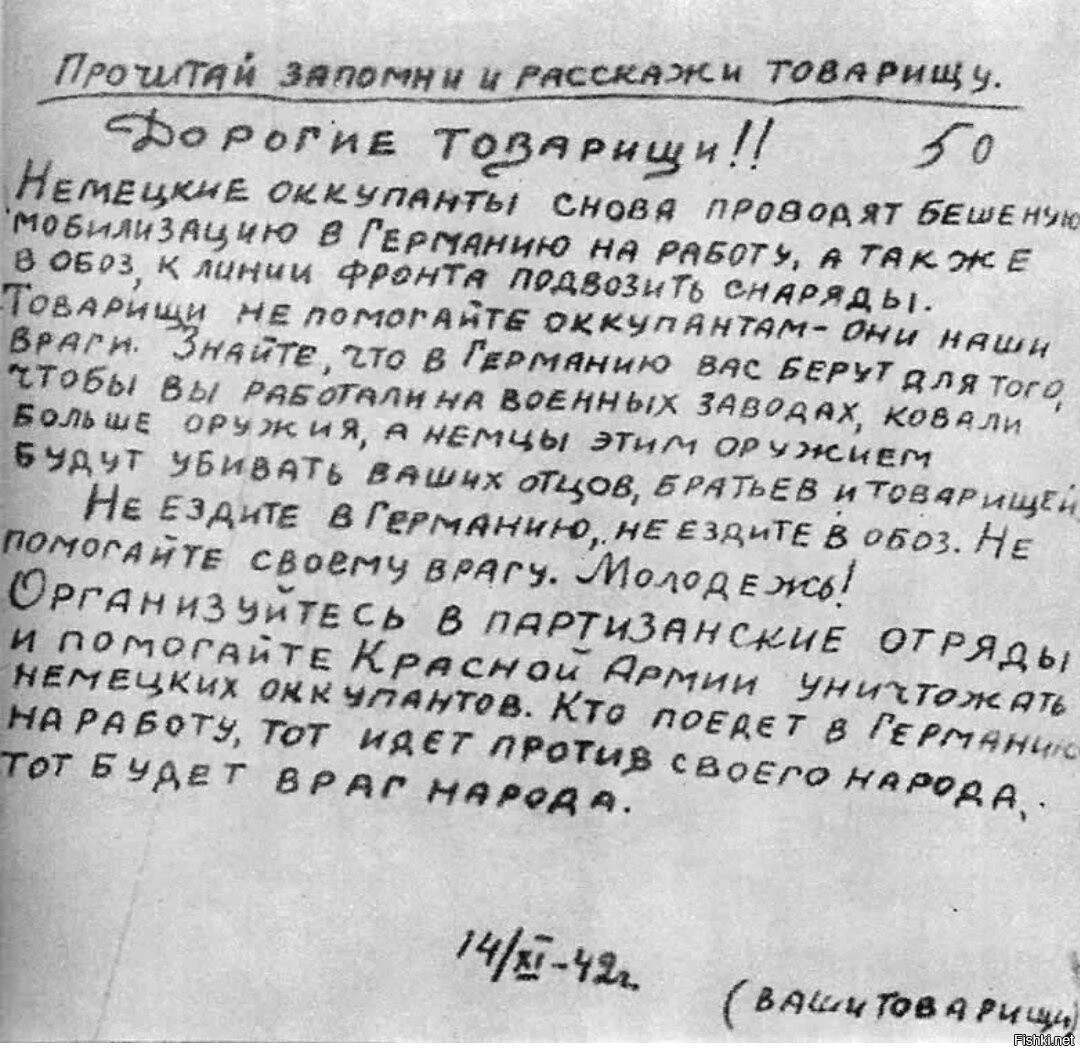 Прочитай запомни и расскажи товарищу.
Дорогие товарищи!! 50
Немецкие оккупанты снова проводят бешеную
мобилизацию в Германию на работу, а так же
в обоз, к линии фронта подвозить снаряды.
Товарищи не помогайте оккупантам – они наши
враги. Знайте, что в Германию вас берут для того,
чтобы вы работали на военных заводах, ковали
больше оружия, а немцы этим оружием
будут убивать ваших отцов, братьев и товарищей.
Не ездите в Германию, не ездите в обоз. Не
помогайте своему врагу. Молодежь!
Организуйтесь в партизанские отряды
и помогайте Красной Армии уничтожать
немецких оккупантов. Кто поедет в Германию
на работу, тот идет против своего народа,
тот будет враг народа.
14/XI-42г.
(ваши товарищи)
Fishki.net